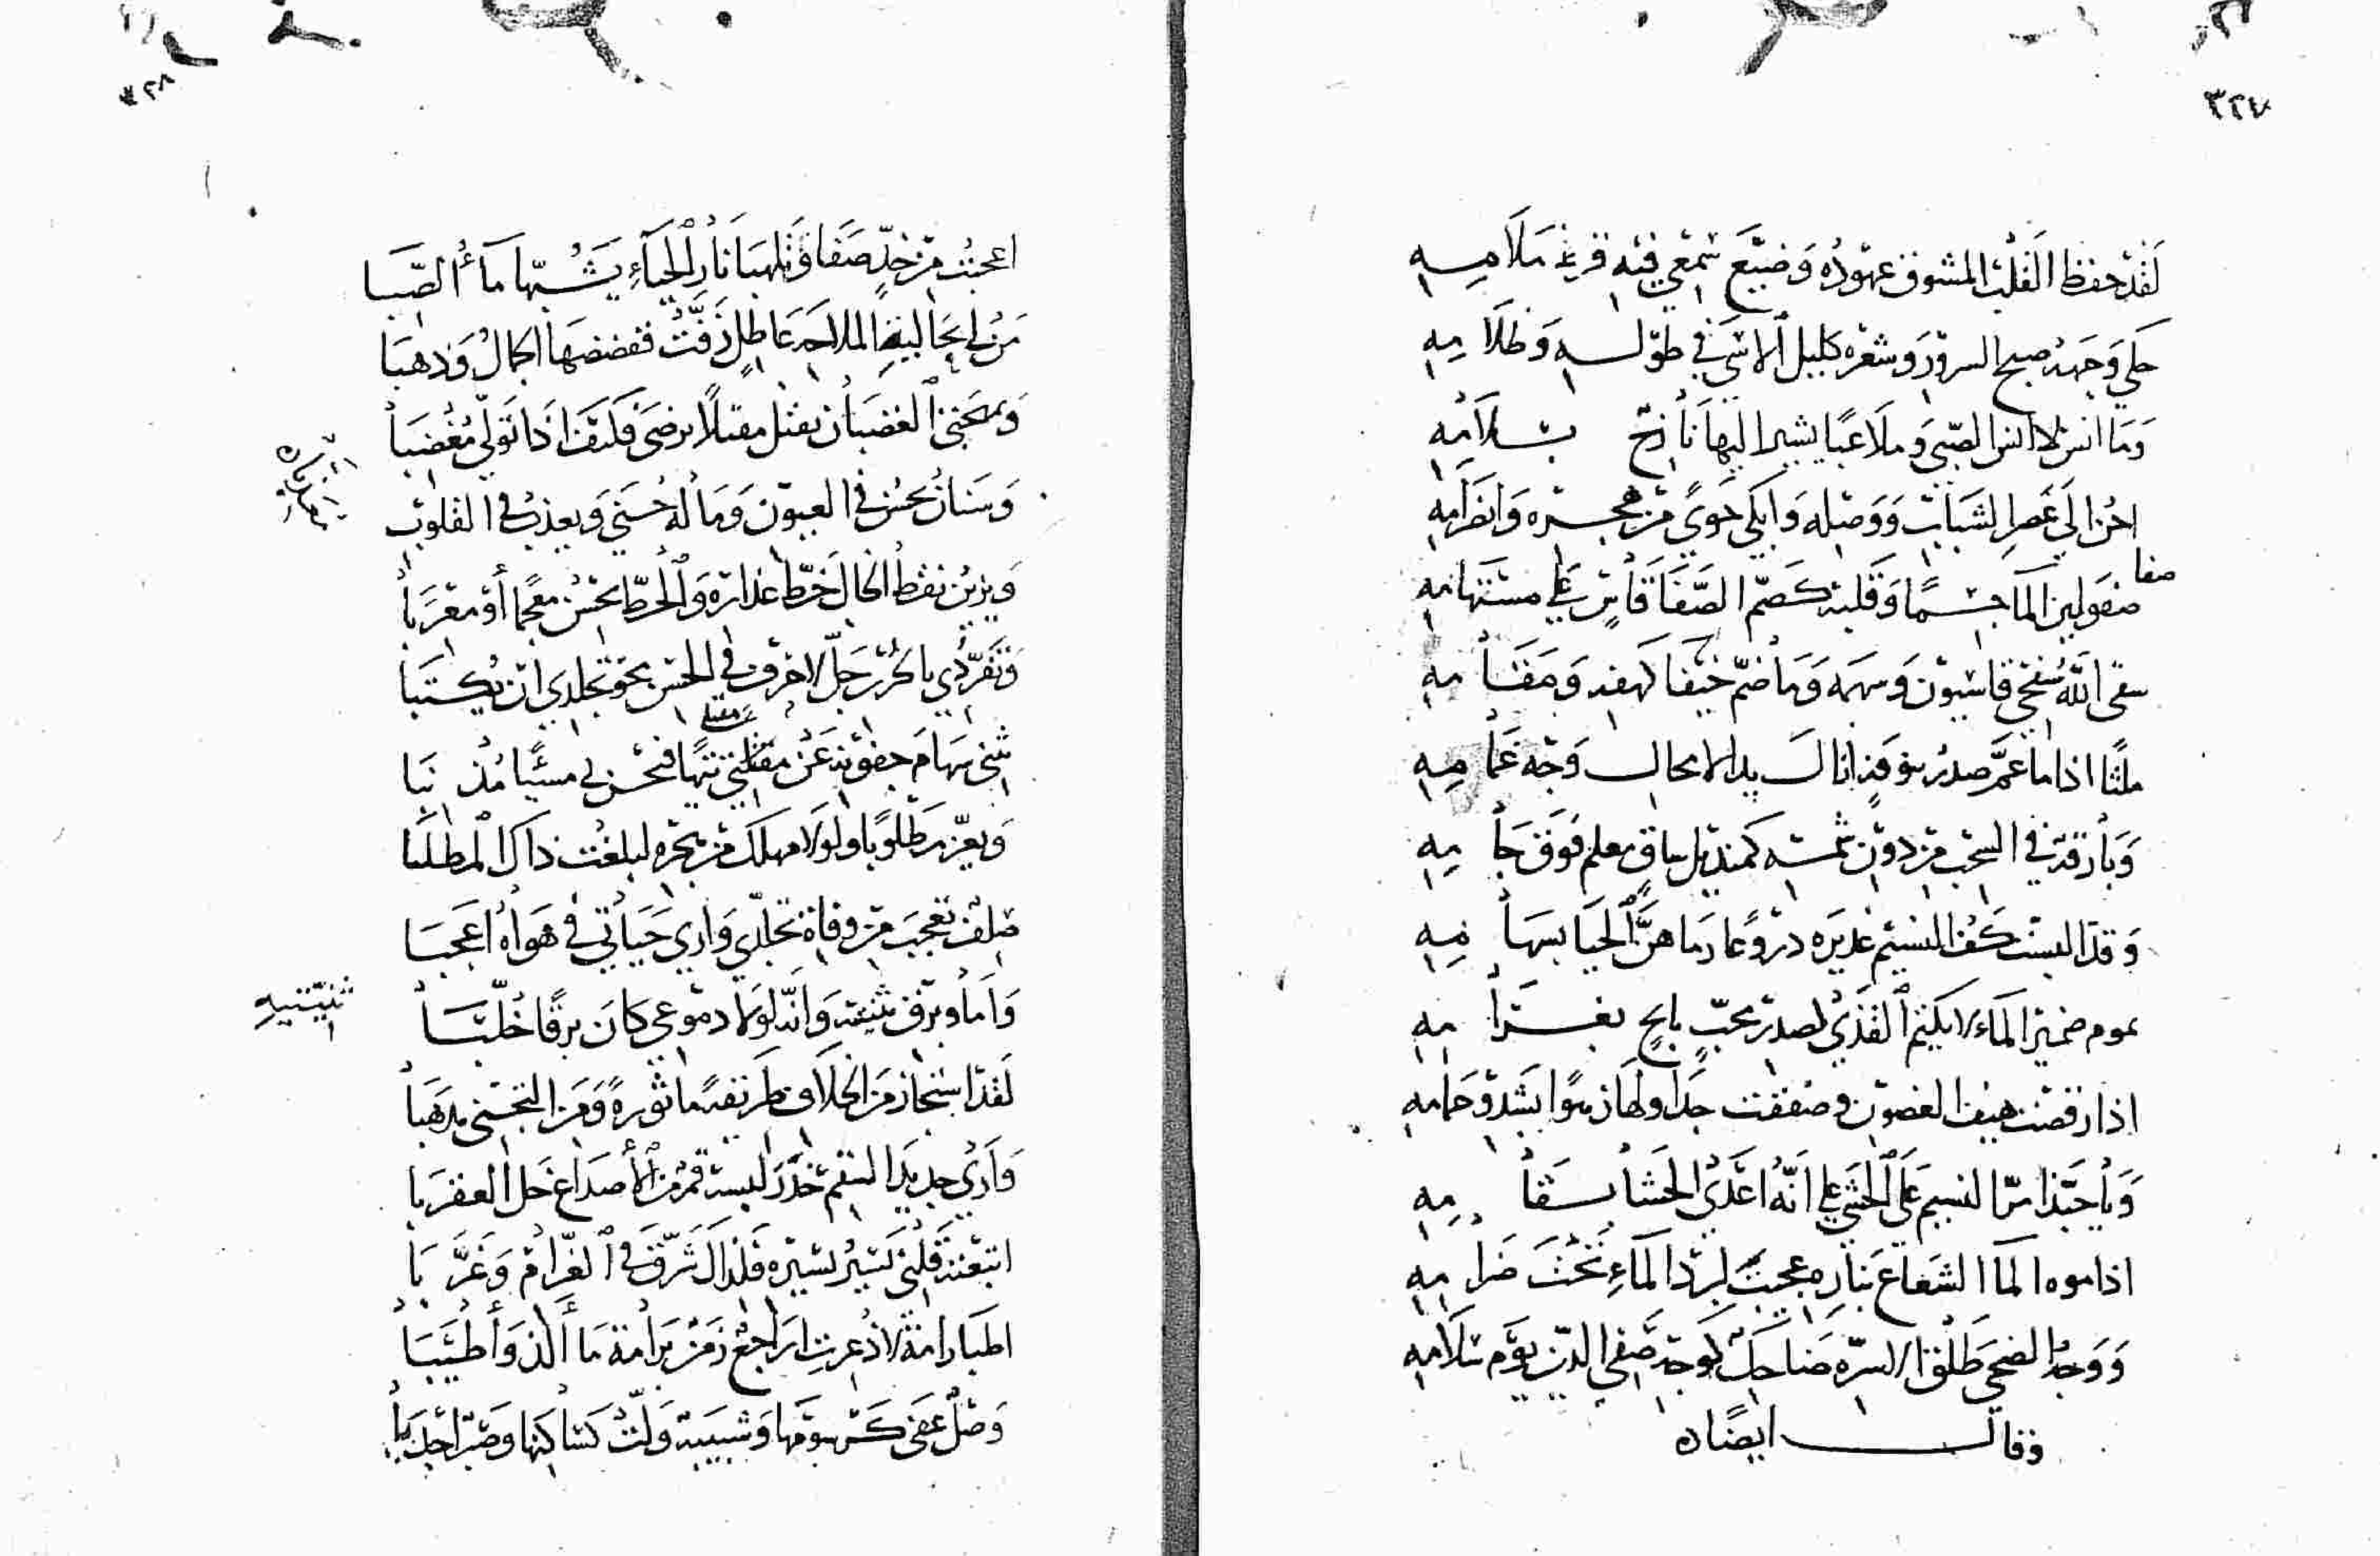 ٣٢٧
لقد حفظ القلب المشوق عهوده وضيع سمعي فيه فرط ملامه
حكى وجهه صبح السرور وشعره كليل الاسى في طوله وظلامه
وما انس لا انس الصبي وملاعبا يشير اليها نازح بسلامه
احن الى عصر الشباب ووصله وابكي جوى من هجره وانصرامه
صفا
منقولين الماء جسما وقلبه كصم الصفا قاس على مستهامه
سقى الله سفحي قاسيون وسهمه وما ضم خيفا كهفه ومقامه
ملثا اذا ما عم صدر بوفده انالك بدالا بحال وجه غمامه
وبارقة في السحب من دون شمسه كمنديل ساق معلم فوق جامه
وقد البست كف النسيم غديره دروعا رماهن الحيا بسهامه
نموم ضمير الماء لا يكتم القذى لصدر محب بايح بغرامه
اذا رقصت هيف الغصون وصفقت جداولها زهوا بشدو حمامه
ويا حبذا مر النسيم على الحشي على انه اعدى الحشا بسقامه
اذا موه الما الشعاع بناره عجبت لبرد الماء تحت ضرامه
ووجه الضحى طلق الاسرة ضاحك كوجه صفي الدين يوم سلامه
وقال ايضا
٣٢٨
اعجبت من خد صفا وتلهبا نار الحياء يشبها ماء الصبا
من لي بحالية الملاحة عاطل زفت ففضضها الجمال وذهبا
وبمهجتي الغضبان يقتل مقبلا يرضى فكيف اذا تولى مغضبا
وسنان يحسن في العيون وماله حسنى ويعذب في القلوب
ويزين نقط الخال خط عذاره والخط يحسن معجما أو معربا
وتفردي بالحزن جل لاحرف في الحسن بخو تجلدي ان تكتبا
يثني سهام جفونه عن مقلتي تيها فنحن لي مسيا مذنبا
ويعز مطلوبا ولولا مهلك من بحره لبلغت ذاك المطلبا
صلف تعجب من وفاة تجلدي واري حياتي في هواه اعجبا
واما وبرق ثنيته وانه لولا دموعي كان برقا خلبا
ثنيتيه
لقد استجاز من الخلاف طريقة ماثورة ومن التجني مذهبا
وارى جديدا السقم خدر لبسه قمر من الأصداغ حل العقربا
اتبعته قلبي كسير بسيره فلذالك شرق في الغرام وغربا
اطبا رامة لاذعرت اراجع زمن برامة ما ألذ وأطيبا
وصل عفى كرسومها وشبيبة ولت كساكنها وصبر اجدبا